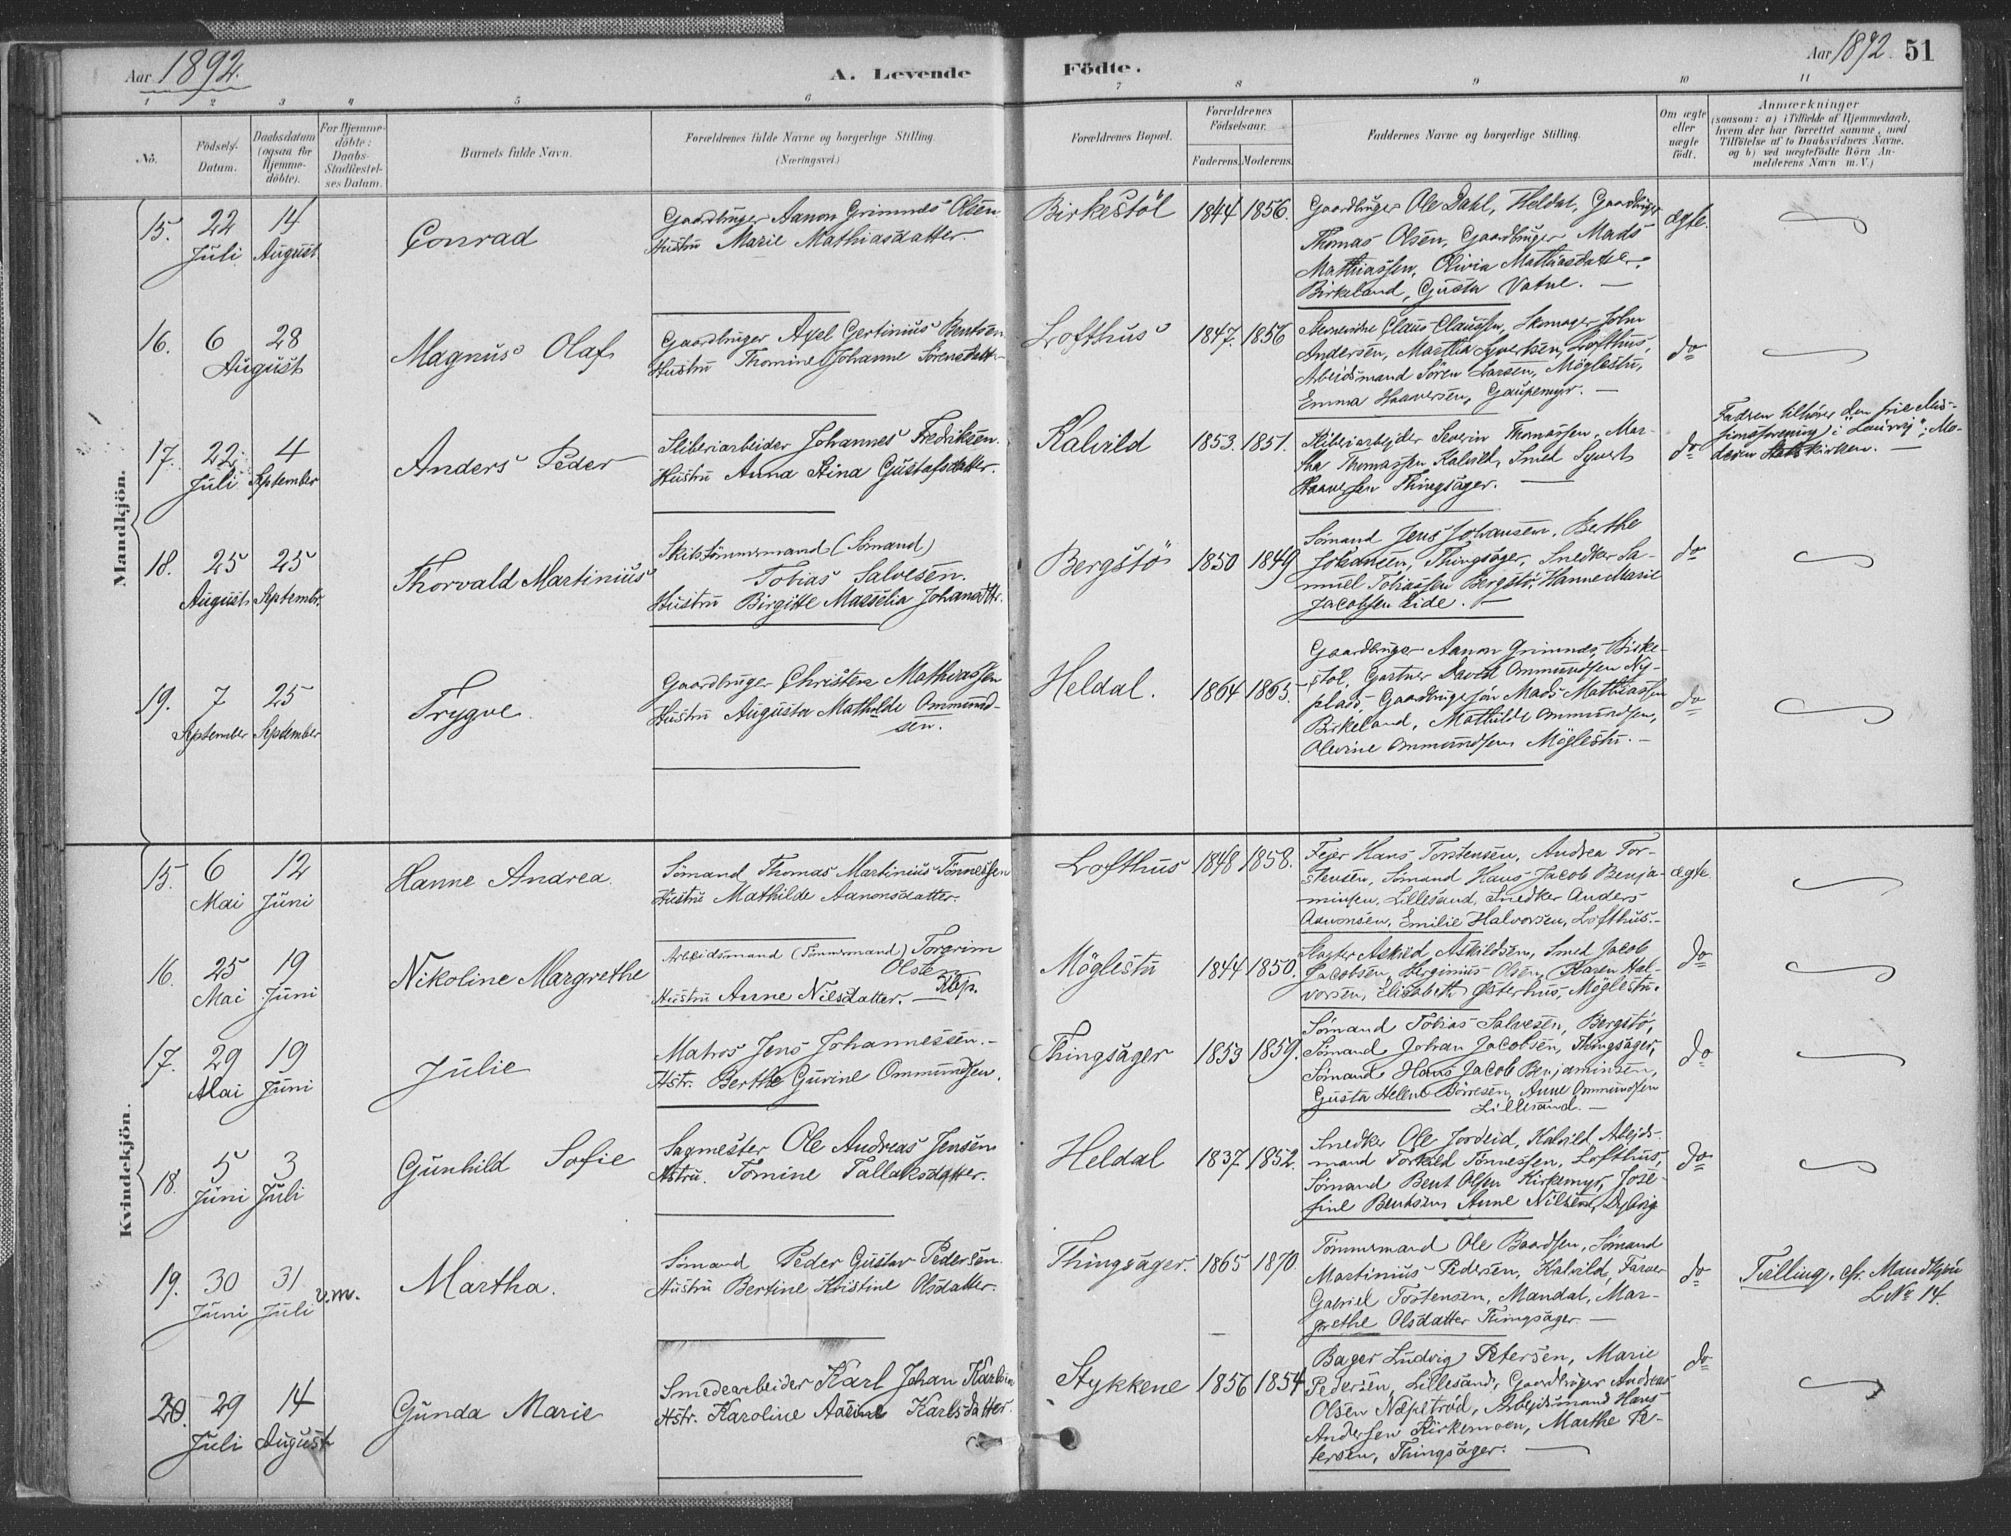 Aar 1892.
A. Levende Födte.
Aar 1892. 51
1 2 3 4 5 6 7 8 9 10 11
No.
Födsels-
Datum.
Daabsdatum
(ogsaa for
Hjemme-
döbte).
For Hjemme-
döbte:
Daabs-
Stadfæstel-
ses Datum.
Barnets fulde Navn.
Forældrenes fulde Navne og borgerlige Stilling.
(Næringsvei.)
Forældrenes Bopæl.
Forældrenes
Födselsaar.
Faderens. Moderens.
Faddernes Navne og borgerlige Stilling.
Om ægte
eller
uægte
født.
Anmærkninger
(saasom: a) i Tilfælde af Hjemmedaab,
hvem der har forrettet samme, med
Tilföielse af to Daabsvidners Navne,
og b) ved uægtefödte Börn An-
melderens Navn m. V.)
Mandkjön.
15. 22 Juli 14 August
Conrad
Gaardbruger Aanon Grimnes Olsen
Hustru Marie Mathiasdatter.
Birkestöl 1844 1856.
Gaardbruger Ole Dahl, Heldal, Gaardbruger
Thomas Olsen, Gaardbruger Mads
Mathiassen, Olivia Mathiasdatter,
Birkeland, Gusta Vatne. —
ægte.
16. 6 28 August
Magnus Olaf
Gaardbruger Axel Gertinius Bentsen
Hustru Thomine Johanne Sörensdatter
Lofthus 1847. 1856
Claus Claussen, Skomager John
Andersen, Martha Syvertsen, Lofthus,
Arbeidsmand Sören Larsen, Möglestu,
Emma Haaversen, Gaupemyr. —
do
17. 22 Juli 4 September
Anders Peder
Sliberiarbeider Johannes Fredriksen.
Hustru Anna Stina Gustafsdatter.
Kalvild 1853. 1851.
Sliberiarbejder Severin Thomassen, Mar-
tha Thomassen Kalvild, Smed Syvert
Haaversen Thingsäger. —
do
Fadren tilhörer den frie Mis-
sionsforening i Laurvig, Mo-
deren Statskirken. —
18. 25 August 25 Septembr.
Thorvald Martinius
Skibstömmermand (Sömand)
Tobias Salvesen.
Hustru Birgitte Maselia Johansdtr.
Bergstö 1850 1849
Sömand Jens Johansen, Bethe
Johansen, Thingsäger, Snedker Sa-
muel Tobiassen Bergstö, Hanne Marie
Jacobsen Eide. —
do
19. 7 September 25 September
Trygve.
Gaardbruger Christen Mathiassen
Hustru Augusta Mathilde Ommund-
sen.
Heldal. 1864 1865.
Gaardbruger Aanon Grimnes, Birke-
stöl, Gartner David Ommundsen Ny-
plads, Gaardbruger Mads Mathiassen
Birkeland, Mathilde Ommundsen,
Olevine Ommundsen Möglestu. —
do
Kvindekjön.
15. 6 Mai 12 Juni
Hanne Andrea.
Sömand Thomas Martinius Tönnessen
Hustru Mathilde Aanonsdatter.
Lofthus 1848 1858.
Fejer Hans Torstensen, Andrea Tor-
stensen, Sömand Hans Jacob Benja-
minsen, Lillesand, Snedker Anders
Aanonsen, Emilie Halvorsen, Lofthus. —
ægte
16. 25 Mai 19 Juni
Nikoline Margrethe
Arbeidsmand (Tömmermand) Torgrim
Olsen
Hustru Anne Nilsdatter.
Möglestu 1844 1850.
Slagter Askild Askildsen, Smed Jacob
Jacobsen, Herginius Olsen, Karen Hal-
vorsen, Elisabeth Österhus, Möglestu.
do
17. 29 Mai 19 Juni
Julie
Matros Jens Johannessen. —
Hstr. Berthe Gurine Ommundsen.
Thingsäger 1853 1859.
Sömand Tobias Salvesen, Bergstö,
Sömand Johan Jacobsen, Thingsäger,
Sömand Hans Jacob Benjaminsen,
Gusta Helene Börresen, Anne Ommundsen
Lillesand. —
do
18. 5 Juni 3 Juli
Gunhild Sofie
Sagmester Ole Andreas Jensen
Hstru. Tomine Tallaksdatter.
Heldal 1837. 1852.
Snedker Ole Jordeid, Kalvild, Abejds-
mand Torkild Tönnessen, Lofthus,
Sömand Bent Olsen Kirkemyr, Jose-
fine Bentsen, Anne Nilsen, Dybvig
do
19. 30 Juni 31 Juli v.m.
Martha.
Sömand Peder Gustav Pedersen
Hustru Bertine Kristine Olsdatter.
Thingsäger. 1865 1870.
Tömmermand Ole Baardsen, Sömand
Martinius Pedersen, Kalvild, Farver
Gabriel Torstensen, Mandal, Mar-
grethe Olsdatter Thingsäger. —
do
Tvilling, cfr. Mandkjön
L No 14.
20. 29 Juli 14 August
Gunda Marie
Smedearbeider Karl Johan Karlsen
Hstr. Karoline Karlsdatter.
Stykkene 1856 1854
Bager Ludvig Petersen, Marie
Pedersen, Lillesand, Gaardbruger Andreas
Olsen Næpetröd, Arbejdsmand Hans
Andersen Kirkemoen, Marthe Pe-
tersen, Thingsäger. —
do